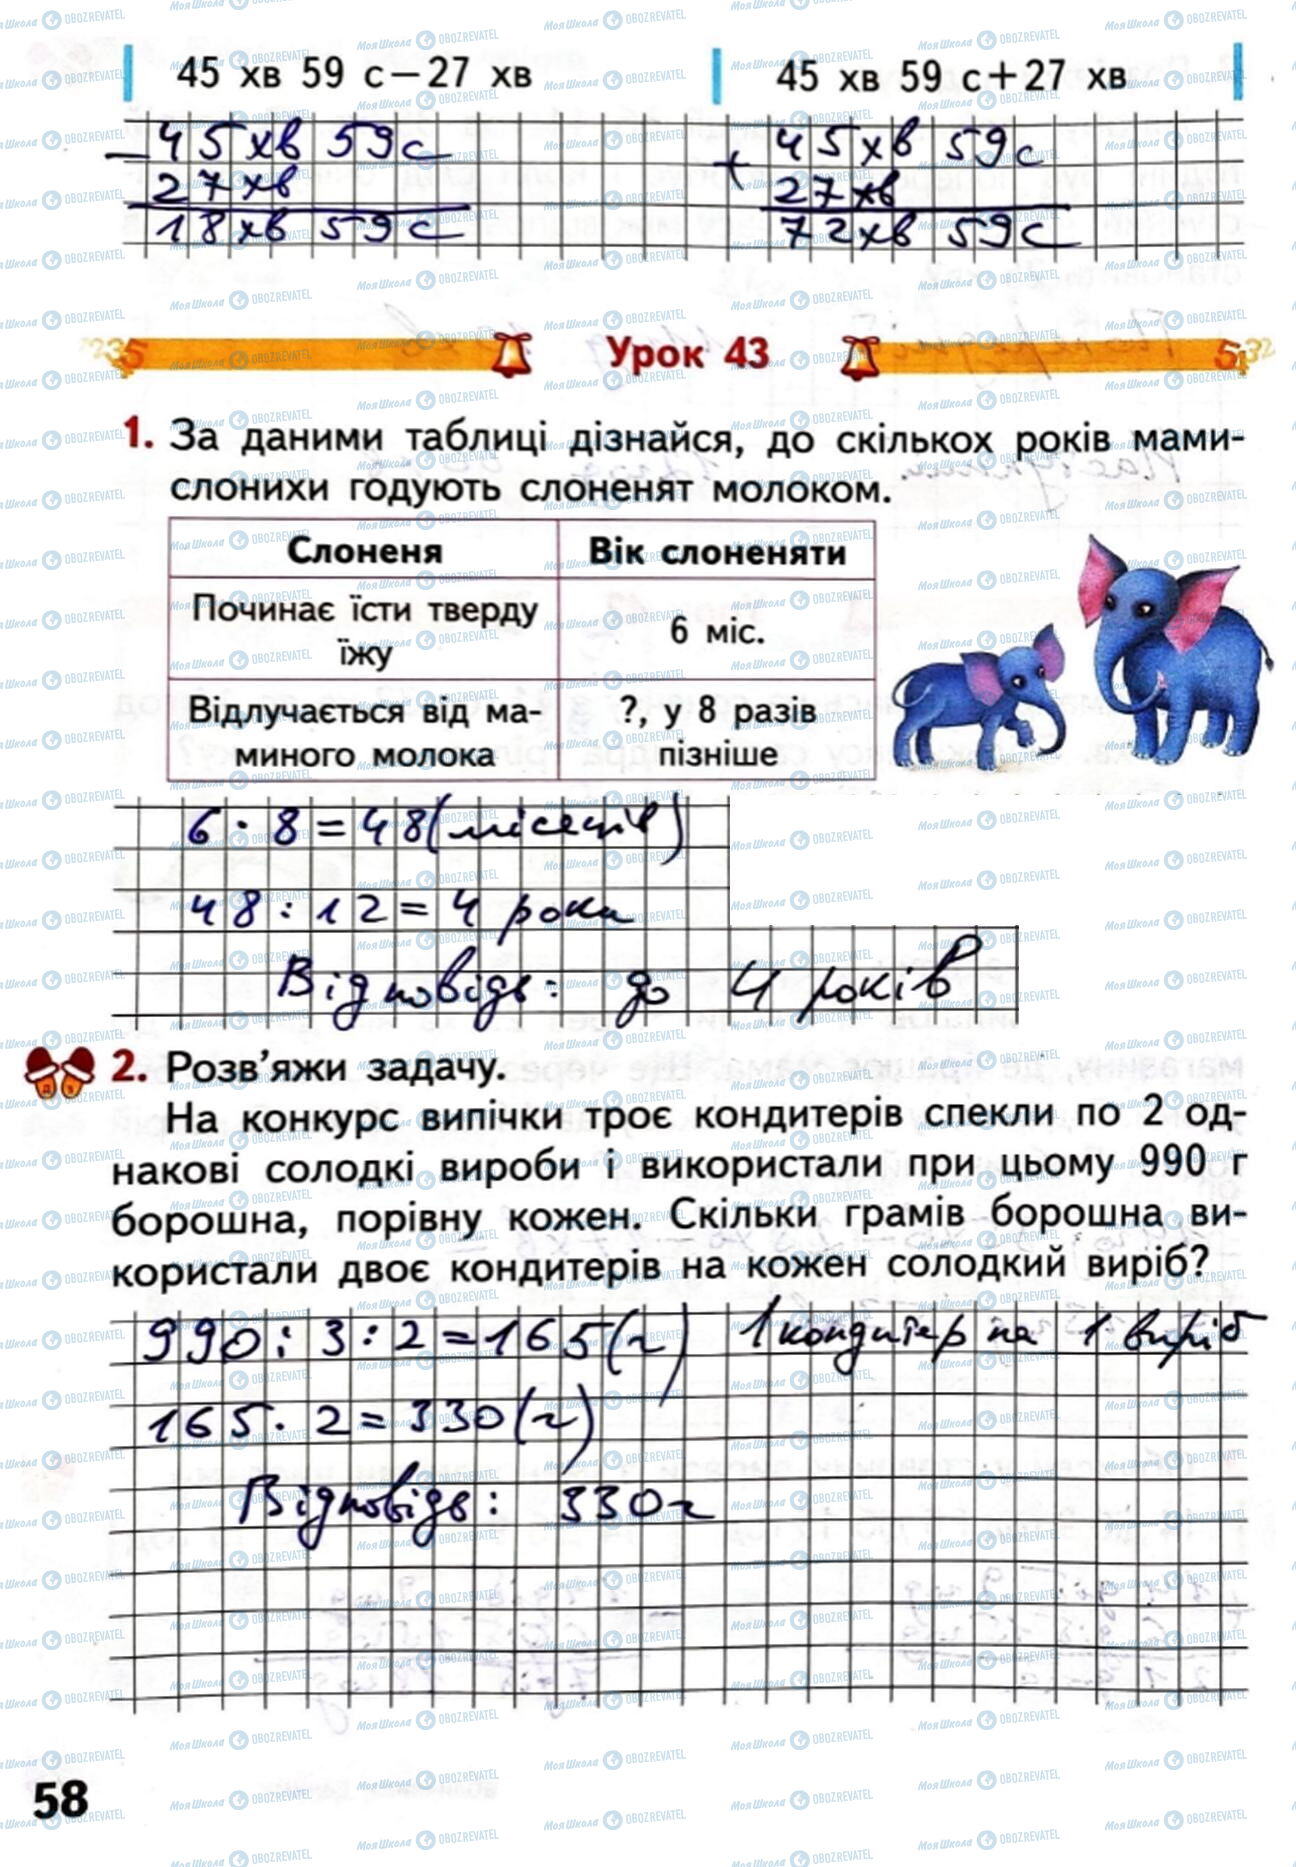 45 хв 59 с−27 хв
45 хв 59 с+27 хв
− 45 хв 59 с
27 хв
18 хв 59 с
+ 45 хв 59 с
27 хв
72 хв 59 с
Урок 43
1. За даними таблиці дізнайся, до скількох років мами-
слонихи годують слоненят молоком.
Слоненя
Вік слоненяти
Починає їсти тверду
їжу
6 міс.
Відлучається від ма-
миного молока
?, у 8 разів
пізніше
6 · 8 = 48 (місяців)
48 : 12 = 4 роки
Відповідь: до 4 років
2. Розв’яжи задачу.
На конкурс випічки троє кондитерів спекли по 2 од-
накові солодкі вироби і використали при цьому 990 г
борошна, порівну кожен. Скільки грамів борошна ви-
користали двоє кондитерів на кожен солодкий виріб?
990 : 3 : 2 = 165 (г) 1 кондитер на 1 виріб
165 · 2 = 330 (г)
Відповідь: 330 г
58
МояШкола OBOZREVATEL